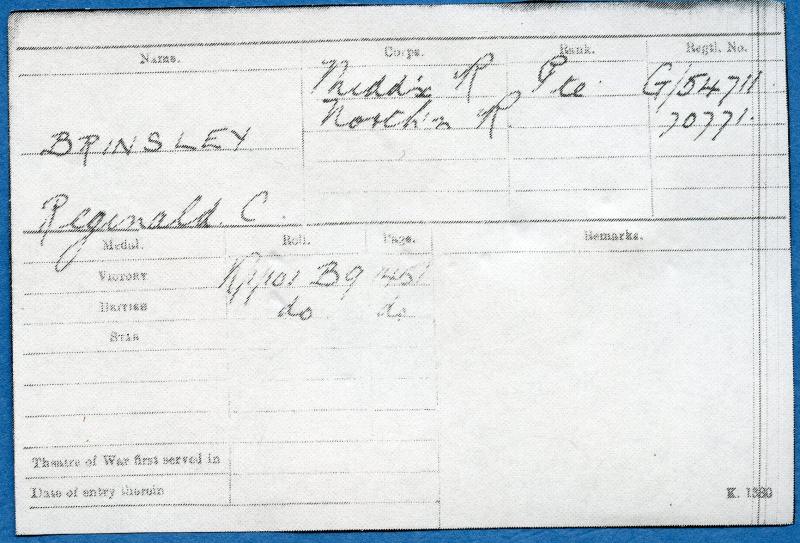 Name. Corps. Rank. Regtl. No.
Middx R Pte G/54711
North'n R. 70771.
BRINSLEY
Reginald. C.
Medal. Roll. Page. Remarks.
VICTORY B9
BRITISH do do
STAR
Theatre of War first served in
Date of entry therein
K. 1380